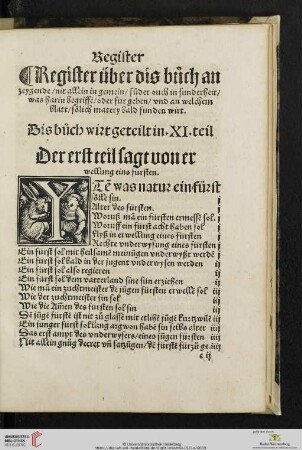 Register
Register über dis bůch an
zeygende/nit allein in gemein/sůder ouch in sunderheit/
was harin begriffē/oder fur geben/vnd an welchem
blatt/sölich matery bald funden wirt.
Dis bůch wirt geteilt in.XI.teil
Der erst teil sagt von er
wellung eins fursten.
was natur ein fürst
sölle sin.
Alter des fursten. j
Woruß mā ein fürsten ermesse sol. j
Woruff ein fürst acht haben sol j
Flyß in erwellung eines fürsten j
Rechte vnderwysung eines fürsten j
Ein fürst sol mit heilsamē meinūgen vnderwyßt werdē j
Ein fürst sol bald in der jugent vnderwysen werden ij
Ein fürst sol also regieren ij
Ein fürst sol dem vaterland sine sün erziehen ij
Wie mā ein zuchtmeister dē jūgen fürsten erwelle sol iij
Wie der zuchtmeister sin sol iij
Wie die Am̄en des fursten sol sin iij
Ein junger fürst sol lang argwon habē ſin ſelbs alter iij
Das erst ampt des vnderwysers/eines jūgen fürsten iij
Nit allein gnůg decret vn̄ satzūgen/ iiij
c ij
UNIVERSITÄTS-
BIBLIOTHEK
HEIDELBERG
© Universitätsbibliothek Heidelberg